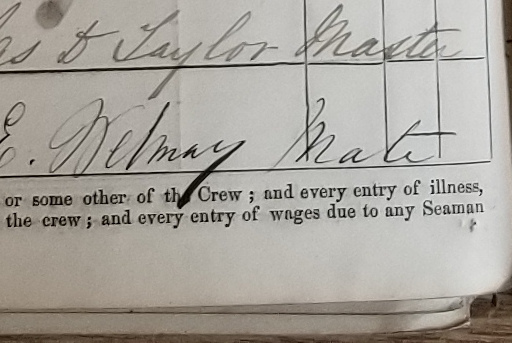 as D Taylor Master
E. Welmay Mate
or some other of the Crew ; and every entry of illness,
the crew ; and every entry of wages due to any Seaman